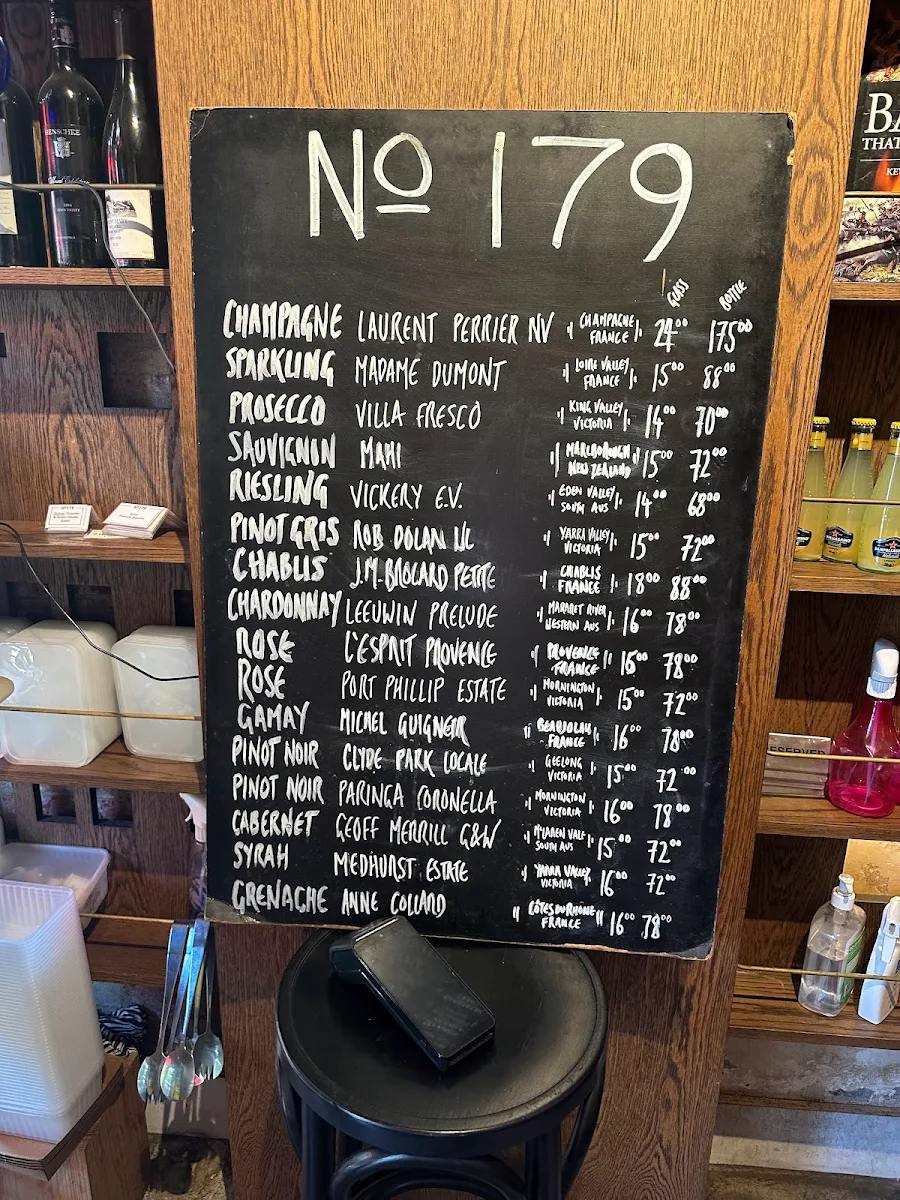 Nº 179
GLASS BOTTLE
CHAMPAGNE LAURENT PERRIER NV CHAMPAGNE FRANCE 24⁰⁰ 175⁰⁰
SPARKLING MADAME DUMONT LOIRE VALLEY FRANCE 15⁰⁰ 88⁰⁰
PROSECCO VILLA FRESCO KING VALLEY VICTORIA 14⁰⁰ 70⁰⁰
SAUVIGNON MAHI MARLBOROUGH NEW ZEALAND 15⁰⁰ 72⁰⁰
RIESLING VICKERY E.V. EDEN VALLEY SOUTH AUS 14⁰⁰ 68⁰⁰
PINOT GRIS ROB DOLAN YARRA VALLEY VICTORIA 15⁰⁰ 72⁰⁰
CHABLIS J.M. BROCARD PETITE CHABLIS FRANCE 18⁰⁰ 88⁰⁰
CHARDONNAY LEEUWIN PRELUDE MARGARET RIVER WESTERN AUS 16⁰⁰ 78⁰⁰
ROSE L'ESPRIT PROVENCE PROVENCE FRANCE 16⁰⁰ 78⁰⁰
ROSE PORT PHILLIP ESTATE MORNINGTON VICTORIA 15⁰⁰ 72⁰⁰
GAMAY MICHEL GUIGNIER FRANCE 16⁰⁰ 78⁰⁰
PINOT NOIR CLYDE PARK LOCALE GEELONG VICTORIA 15⁰⁰ 72⁰⁰
PINOT NOIR PARINGA CORONELLA MORNINGTON VICTORIA 16⁰⁰ 78⁰⁰
CABERNET GEOFF MERRILL G&W McLAREN VALE SOUTH AUS 15⁰⁰ 72⁰⁰
SYRAH MEDHURST ESTATE YARRA VALLEY VICTORIA 16⁰⁰ 72⁰⁰
GRENACHE ANNE COLLARD CÔTES DU RHÔNE FRANCE 16⁰⁰ 78⁰⁰
HENSCHKE
BA
THAT
RESERVED